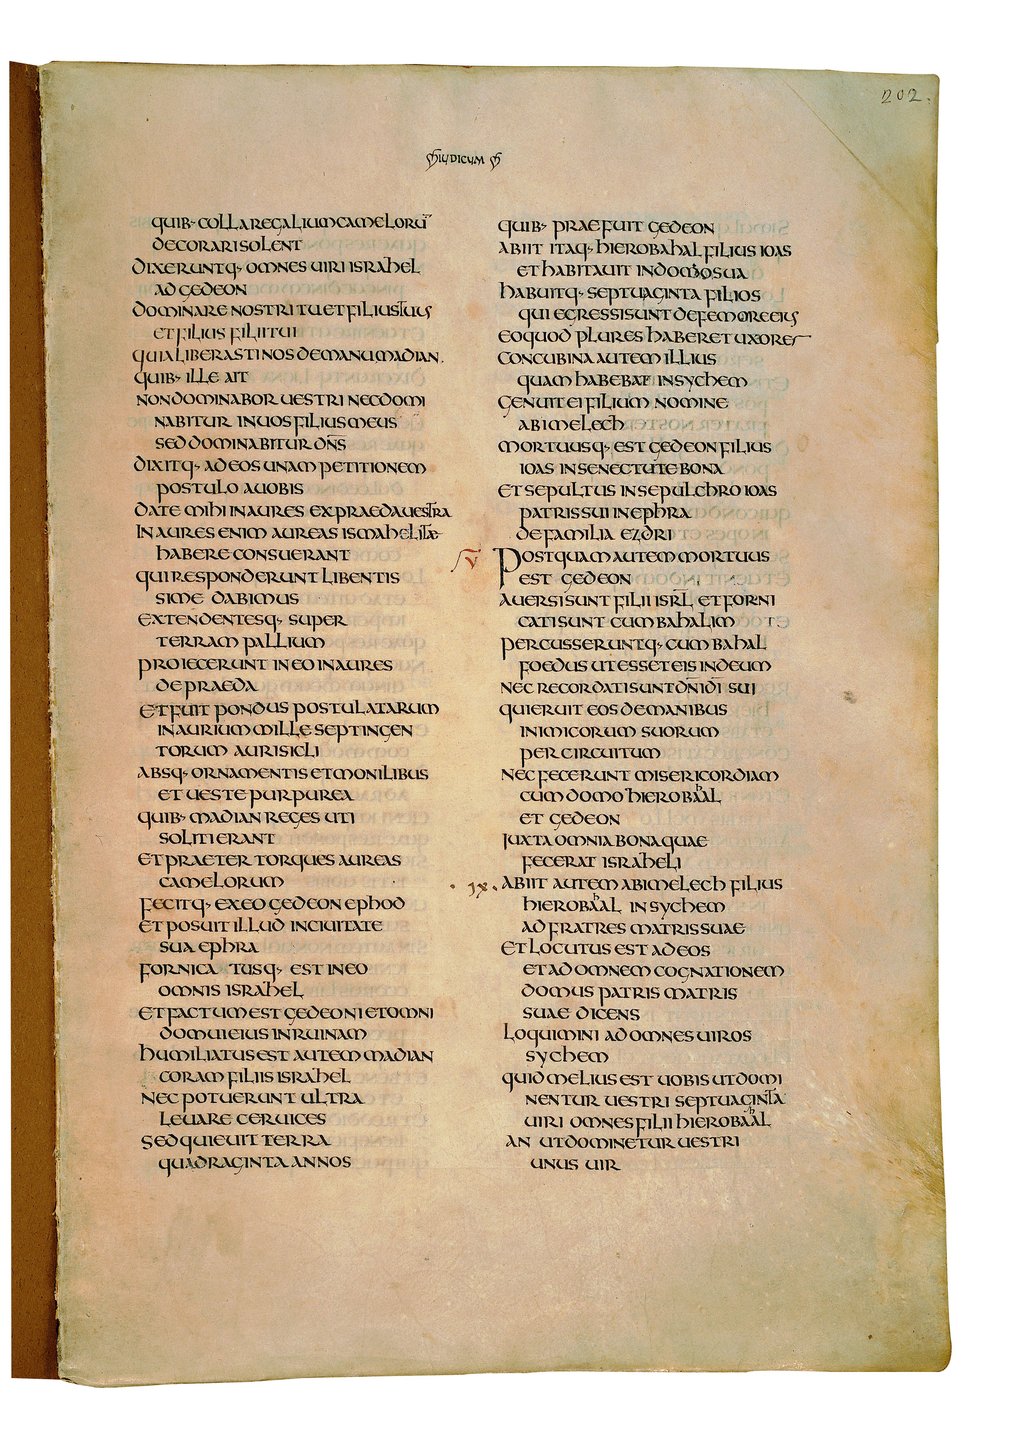 202.
IUDICUM
QUIB· COLLA REGALIUM CAMELORŪ
DECORARI SOLENT
DIXERUNTQ· OMNES UIRI ISRAHEL
AD GEDEON
DOMINARE NOSTRI TU ET FILIUS TUUS
ET FILIUS FILII TUI
QUIA LIBERASTI NOS DE MANU MADIAN.
QUIB· ILLE AIT
NON DOMINABOR UESTRI NEC DOMI
NABITUR IN UOS FILIUS MEUS
SED DOMINABITUR DN̄S
DIXITQ· AD EOS UNAM PETITIONEM
POSTULO A UOBIS
DATE MIHI INAURES EX PRAEDA UESTRA
INAURES ENIM AUREAS ISMAHELITAE
HABERE CONSUERANT
QUI RESPONDERUNT LIBENTIS
SIME DABIMUS
EXTENDENTESQ· SUPER
TERRAM PALLIUM
PROIECERUNT IN EO INAURES
DE PRAEDA
ET FUIT PONDUS POSTULATARUM
INAURIUM MILLE SEPTINGEN
TORUM AURI SICLI
ABSQ· ORNAMENTIS ET MONILIBUS
ET UESTE PURPUREA
QUIB· MADIAN REGES UTI
SOLITI ERANT
ET PRAETER TORQUES AUREAS
CAMELORUM
FECITQ· EX EO GEDEON EPHOD
ET POSUIT ILLUD IN CIUITATE
SUA EPHRA
FORNICATUSQ· EST IN EO
OMNIS ISRAHEL
ET FACTUM EST GEDEONI ET OMNI
DOMUI EIUS IN RUINAM
HUMILIATUS EST AUTEM MADIAN
CORAM FILIIS ISRAHEL
NEC POTUERUNT ULTRA
LEUARE CERUICES
SED QUIEUIT TERRA
QUADRAGINTA ANNOS
QUIB· PRAEFUIT GEDEON
ABIIT ITAQ· HIEROBAHAL FILIUS IOAS
ET HABITAUIT IN DOMO SUA
HABUITQ· SEPTUAGINTA FILIOS
QUI EGRESSI SUNT DE FEMORE EIUS
EO QUOD PLURES HABERET UXORES
CONCUBINA AUTEM ILLIUS
QUAM HABEBAT IN SYCHEM
GENUIT EI FILIUM NOMINE
ABIMELECH
MORTUUSQ· EST GEDEON FILIUS
IOAS IN SENECTUTE BONA
ET SEPULTUS IN SEPULCHRO IOAS
PATRIS SUI IN EPHRA
DE FAMILIA EZDRI
POSTQUAM AUTEM MORTUUS
EST GEDEON
AUERSI SUNT FILII ISRL̄ ET FORNI
CATI SUNT CUM BAHALIM
PERCUSSERUNTQ· CUM BAHAL
FOEDUS UT ESSET EIS IN DEUM
NEC RECORDATI SUNT DN̄I DĪ SUI
QUI ERUIT EOS DE MANIBUS
INIMICORUM SUORUM
PER CIRCUITUM
NEC FECERUNT MISERICORDIAM
CUM DOMO HIEROBAHAL
ET GEDEON
IUXTA OMNIA BONA QUAE
FECERAT ISRAHELI
·IX· ABIIT AUTEM ABIMELECH FILIUS
HIEROBAHAL IN SYCHEM
AD FRATRES MATRIS SUAE
ET LOCUTUS EST AD EOS
ET AD OMNEM COGNATIONEM
DOMUS PATRIS MATRIS
SUAE DICENS
LOQUIMINI AD OMNES UIROS
SYCHEM
QUID MELIUS EST UOBIS UT DOMI
NENTUR UESTRI SEPTUAGINTA
UIRI OMNES FILII HIEROBAHAL
AN UT DOMINETUR UESTRI
UNUS UIR